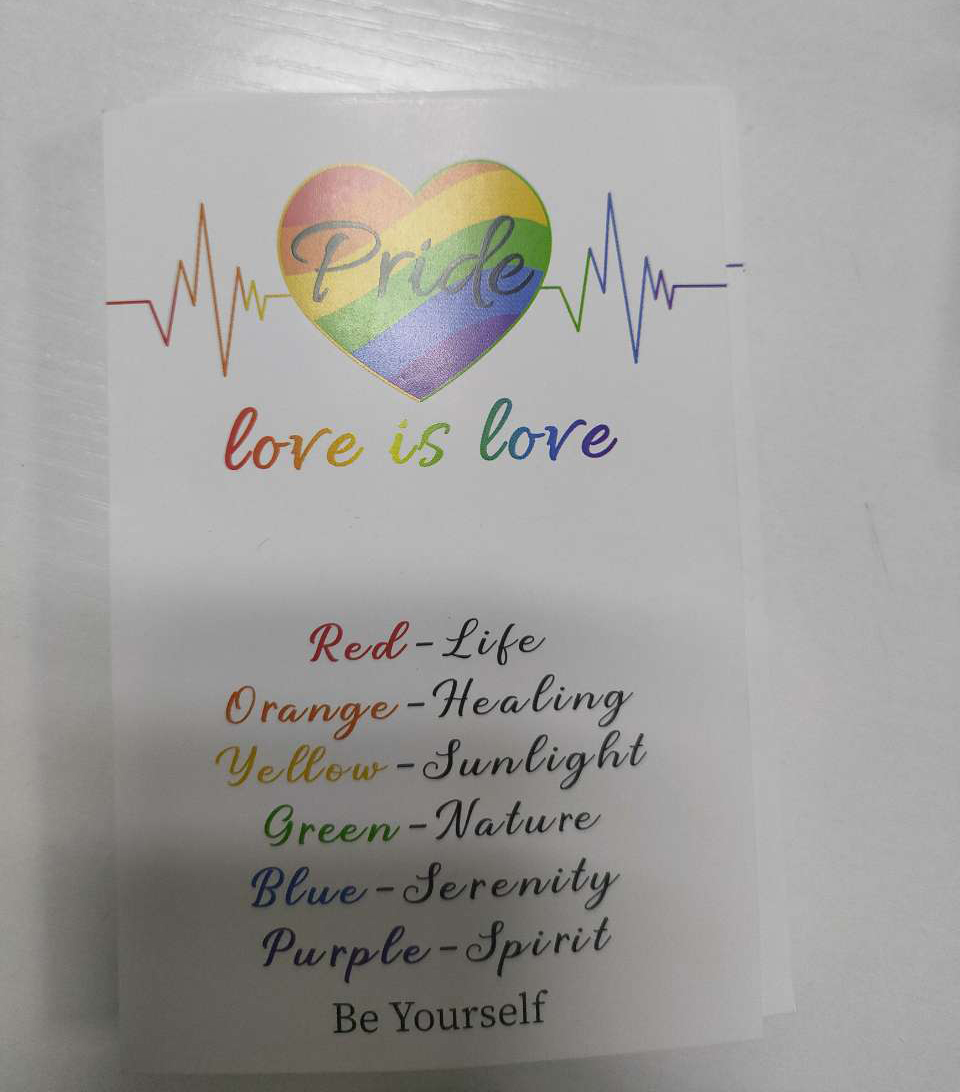 Pride
love is love
Red-Life
Orange-Healing
Yellow-Sunlight
Green-Nature
Blue-Serenity
Purple-Spirit
Be Yourself